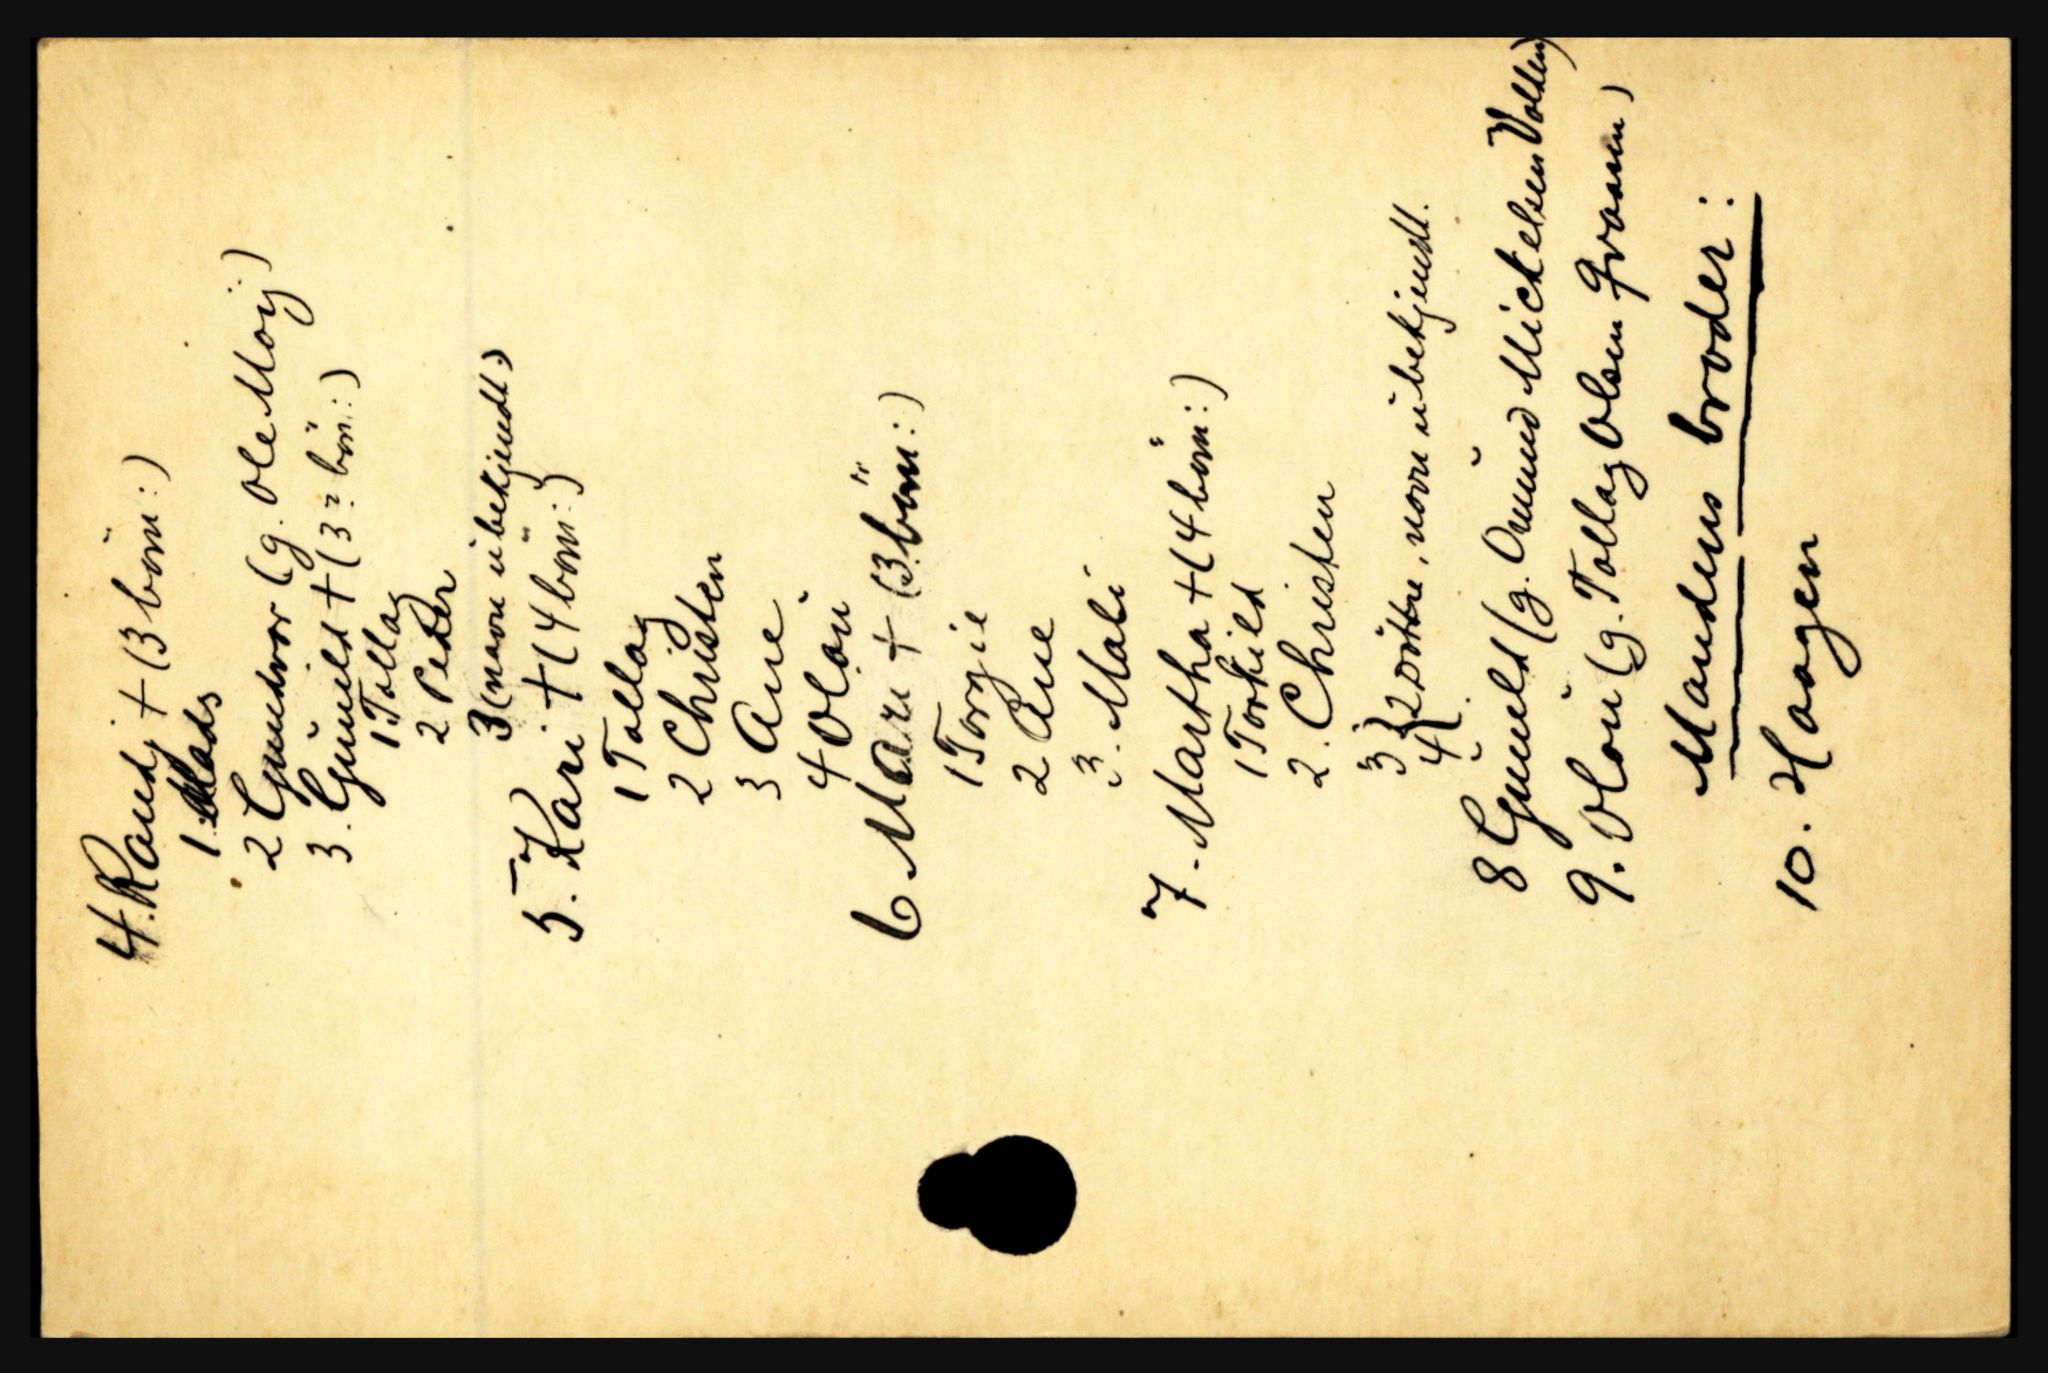 4. Randj + (3 börn:)
1. Mads
2 Gundvor (g. Ole Moij:)
3. Gunild + (3 ? börn:)
1 Tallag
2 Peder
3 (navn ubekjendt)
5. Kari + (4 börn:)
1 Tallag
2 Christen
3 Ane
4 Olou
6 Mari + (3. börn:)
1 Torgie
2 Ane
3. Mali
7. Martha + (4 börn:)
1 Torkild
2. Christen
3 } 2 döttre, navn ubekjendt.
4
8 Gunild (g. Omund Mickelsen Vollen)
9. Olou (g. Tallag Olsen Qvasen)
Mandens broder:
10. Haagen